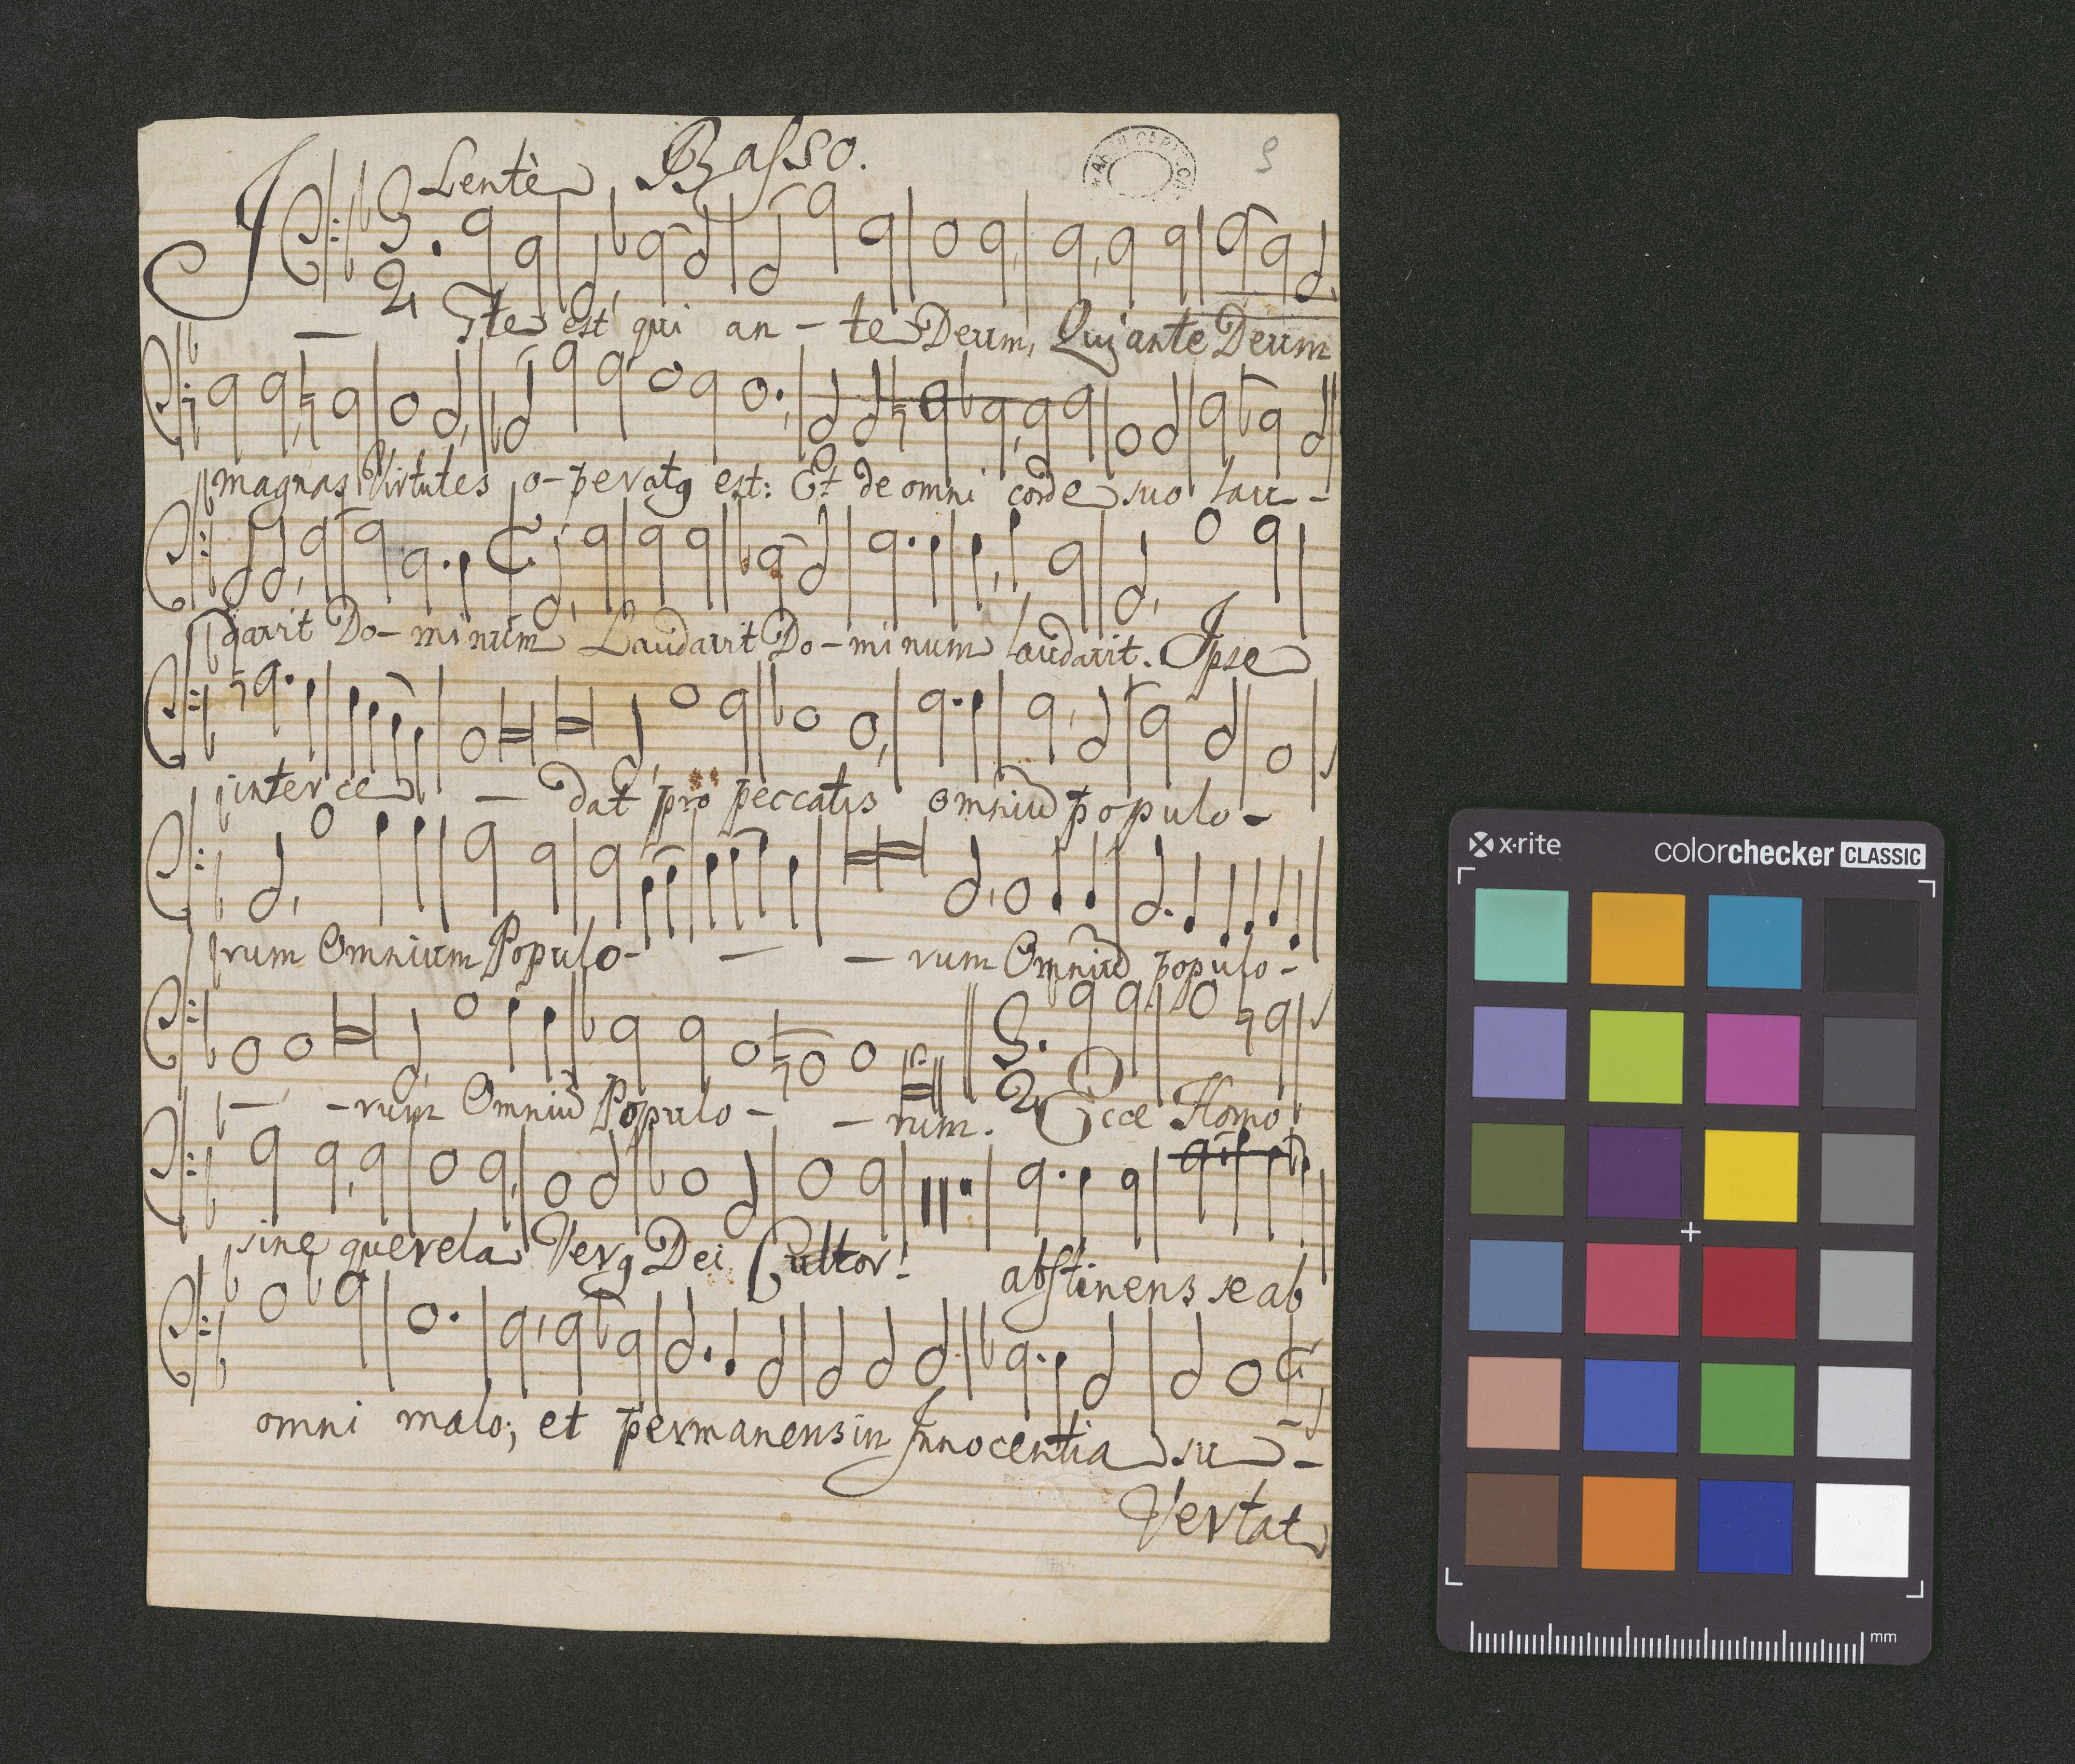 Lentè Basso. 9
3/2
Iste est qui an - te Deum, Qui ante Deum
magnas Virtutes o-peratg est: Et de omni corde suo lau--
davit Do-minum Laudavit Do-minum laudavit. Ipse
interce - dat pro peccatis omniũ popolo-
rum Omnium Populo- - - rum Omniũ populo-
- -rum Omniũ Populo- - rum. 3/2 Ecce Homo
sine querela Verg Dei Cultor! abstinens se ab
omni malo; et permanens in Innocentia su -
Vertat
x·rite colorchecker CLASSIC
mm